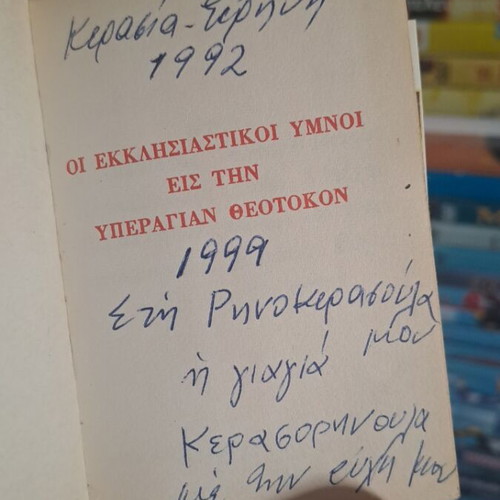 Κερασία-Ειρήνη
1992
ΟΙ ΕΚΚΛΗΣΙΑΣΤΙΚΟΙ ΥΜΝΟΙ
ΕΙΣ ΤΗΝ
ΥΠΕΡΑΓΙΑΝ ΘΕΟΤΟΚΟΝ
1999
Στη Ρηνοκερασούλα
μου
η γιαγιά
Κερασορηνουλα
με την ευχή μου